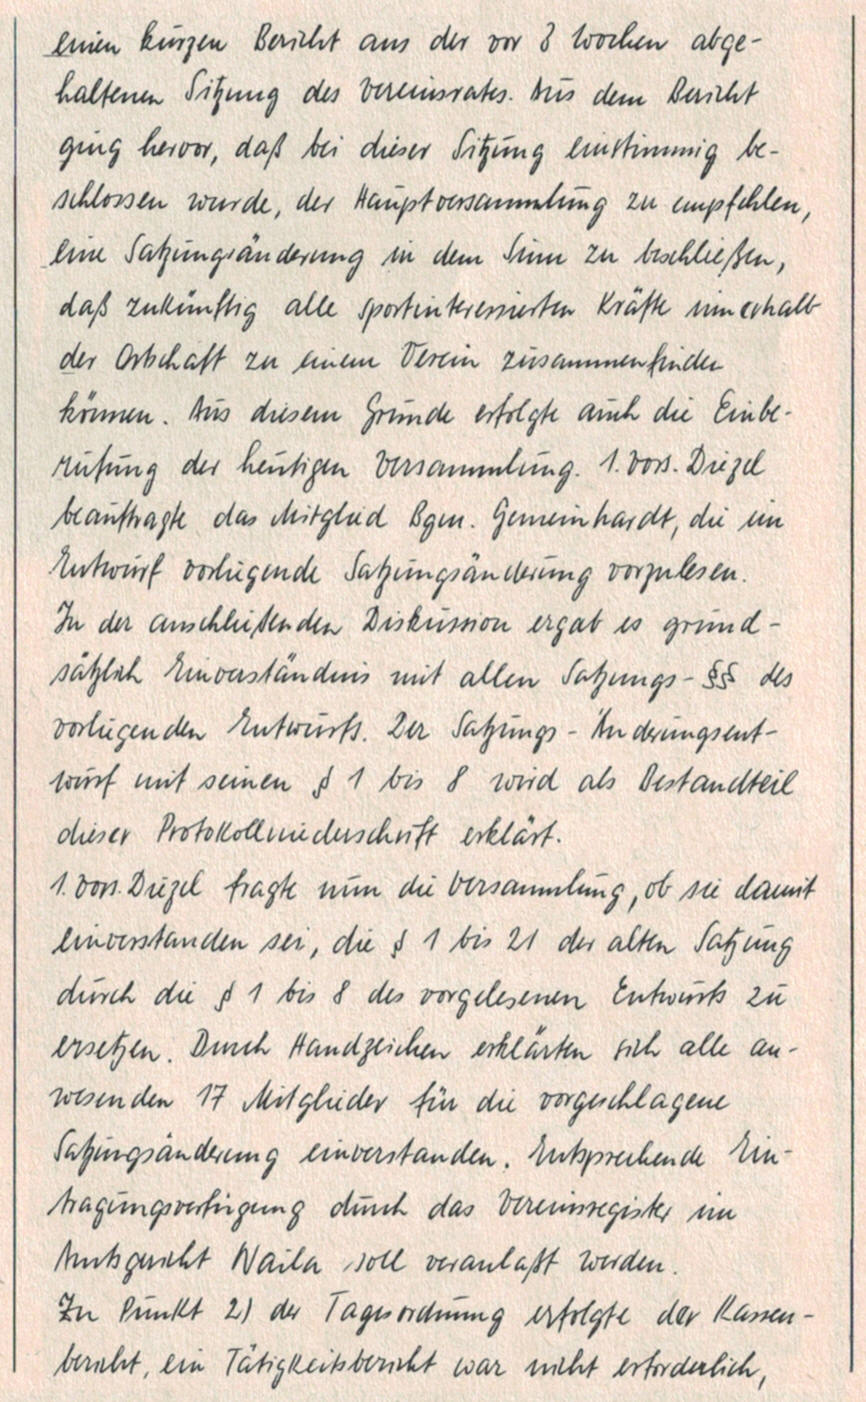 einen kurzen Bericht aus der vor 3 Wochen abge-
haltenen Sitzung des Vereinsrates. Aus dem Bericht
ging hervor, daß bei dieser Sitzung einstimmig be-
schlossen wurde, der Hauptversammlung zu empfehlen,
eine Satzungsänderung in dem Sinn zu beschließen,
daß zukünftig alle sportinteressierten Kräfte innerhalb
der Ortschaft zu einem Verein zusammenfinden
können. Aus diesem Grunde erfolgte auch die Einbe-
rufung der heutigen Versammlung. 1. Vors. Diezel
beauftragte das Mitglied Bgm. Gemeinhardt, die im
Entwurf vorliegende Satzungsänderung vorzulesen.
In der anschließenden Diskussion ergab es grund-
sätzlich Einverständnis mit allen Satzungs-§§ des
vorliegenden Entwurfs. Der Satzungs-Änderungsent-
wurf mit seinen § 1 bis 8 wird als Bestandteil
dieser Protokollniederschrift erklärt.
1. Vors. Diezel fragte nun die Versammlung, ob sie damit
einverstanden sei, die § 1 bis 21 der alten Satzung
durch die § 1 bis 8 des vorgelesenen Entwurfs zu
ersetzen. Durch Handzeichen erklärten sich alle an-
wesenden 17 Mitglieder für die vorgeschlagene
Satzungsänderung einverstanden. Entsprechende Ein-
tragungsverfügung durch das Vereinsregister im
Amtsgericht Naila soll veranlaßt werden.
Zu Punkt 2) der Tagesordnung erfolgte der Kassen-
bericht, ein Tätigkeitsbericht war nicht erforderlich,